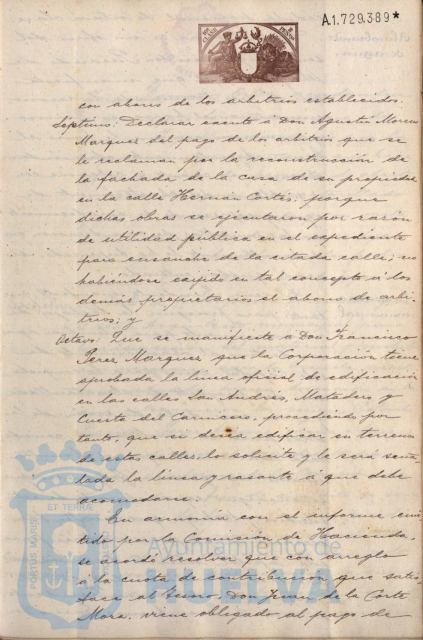 A1.729.389*
con abono de los arbitrios establecidos.
Séptimo: Declarar exento á Don Agustín Moreno
Marquez del pago de los arbitrios que se
le reclaman por la reconstrucción de
la fachada de la casa de su propiedad
en la calle Hernán Cortés, porque
dichas obras se ejecutaron por razón
de utilidad pública en el expediente
para ensanche de la citada calle; no
habiéndose exijido en tal concepto á los
demás propietarios el abono de arbi-
trios; y
Octavo: Que se manifieste á Don Francisco
Perez Marquez que la Corporación tiene
aprobada la línea oficial de edificación
en las calles San Andrés, Matadero y
Cuesta del Carnicero, procediendo por
tanto, que si desea edificar en terrenos
de estas calles, lo solicite y le será seña-
lada la línea y rasante á que debe
acomodarse.
En armonía con el informe emi-
tido por la Comisión de Hacienda,
se acordó resolver que con arreglo
á la cuota de contribución que satis-
face al Tesoro, Don Juan de la Corte
Mora, viene obligado al pago de
PORTUS MARIS
ET TERRÆ
Ayuntamiento de
HUELVA